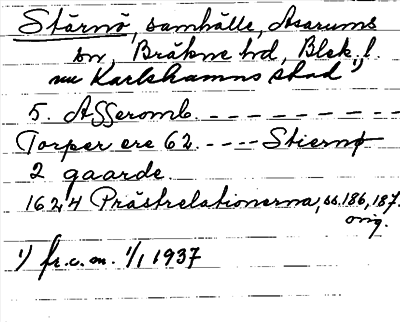 Stärnö, samhälle, Asarums
sn, Bräkne hd, Blek. l.
nu Karlshamns stad 1)
5. Aggeromb. - - - - - - - - -
Torper ere 62. - - - - Stiernø
2 gaarde.
1624 Prästrelationerna, ss. 186, 187.
orig.
1) fr.o.m. 1/1 1937